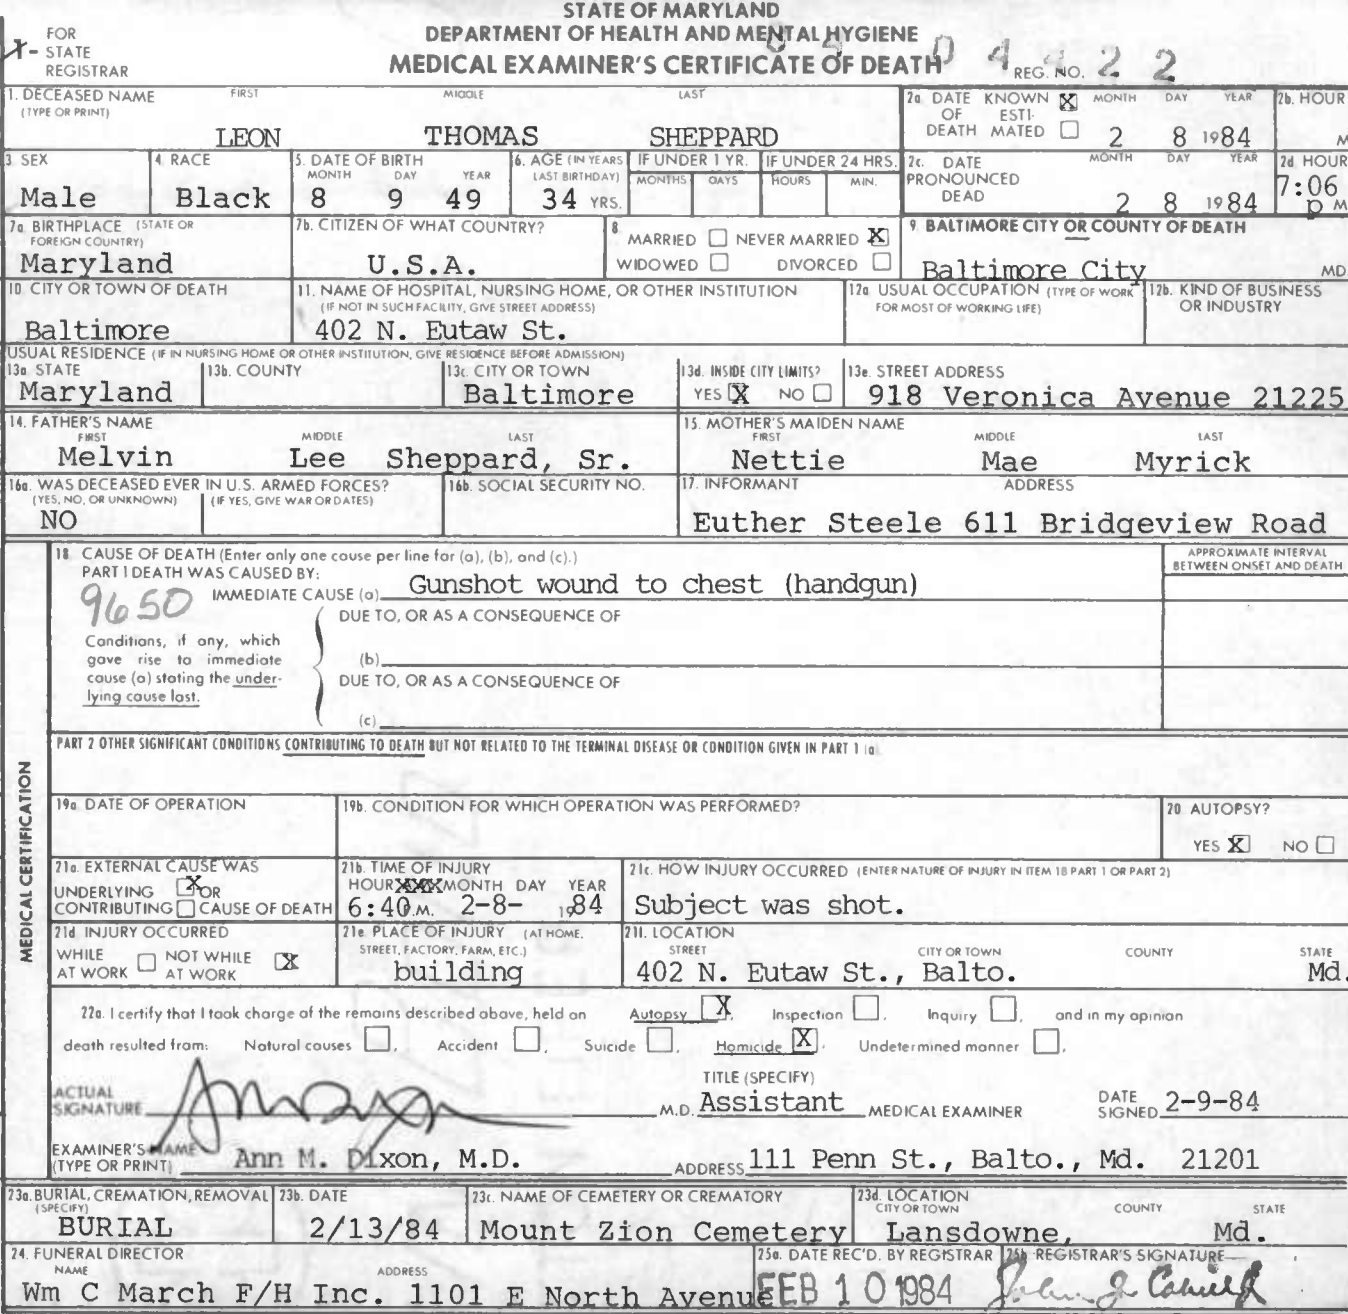 STATE OF MARYLAND
DEPARTMENT OF HEALTH AND MENTAL HYGIENE
MEDICAL EXAMINER'S CERTIFICATE OF DEATH
FOR
STATE
REGISTRAR
REG. NO. 04422
1. DECEASED NAME FIRST MIDDLE LAST
(TYPE OR PRINT)
LEON THOMAS SHEPPARD
2a DATE KNOWN X MONTH DAY YEAR
OF ESTI-
DEATH MATED 2 8 1984
2b. HOUR
M
3 SEX
Male
4 RACE
Black
5. DATE OF BIRTH
MONTH DAY YEAR
8 9 49
6. AGE (IN YEARS
LAST BIRTHDAY)
34 YRS.
IF UNDER 1 YR.
MONTHS DAYS
IF UNDER 24 HRS.
HOURS MIN.
2c. DATE MONTH DAY YEAR
PRONOUNCED
DEAD 2 8 1984
2d HOUR
7:06
p M
7a BIRTHPLACE (STATE OR
FOREIGN COUNTRY)
Maryland
7b. CITIZEN OF WHAT COUNTRY?
U.S.A.
8
MARRIED NEVER MARRIED X
WIDOWED DIVORCED
9. BALTIMORE CITY OR COUNTY OF DEATH
Baltimore City MD
10. CITY OR TOWN OF DEATH
Baltimore
11. NAME OF HOSPITAL, NURSING HOME, OR OTHER INSTITUTION
(IF NOT IN SUCH FACILITY, GIVE STREET ADDRESS)
402 N. Eutaw St.
12a. USUAL OCCUPATION (TYPE OF WORK
FOR MOST OF WORKING LIFE)
12b. KIND OF BUSINESS
OR INDUSTRY
USUAL RESIDENCE (IF IN NURSING HOME OR OTHER INSTITUTION, GIVE RESIDENCE BEFORE ADMISSION)
13a. STATE
Maryland
13b. COUNTY
13c. CITY OR TOWN
Baltimore
13d. INSIDE CITY LIMITS?
YES X NO
13e. STREET ADDRESS
918 Veronica Avenue 21225
14. FATHER'S NAME
FIRST MIDDLE LAST
Melvin Lee Sheppard, Sr.
15. MOTHER'S MAIDEN NAME
FIRST MIDDLE LAST
Nettie Mae Myrick
16a. WAS DECEASED EVER IN U.S. ARMED FORCES?
(YES, NO, OR UNKNOWN) (IF YES, GIVE WAR OR DATES)
NO
16b. SOCIAL SECURITY NO.
17. INFORMANT ADDRESS
Euther Steele 611 Bridgeview Road
MEDICAL CERTIFICATION
18 CAUSE OF DEATH (Enter only one cause per line for (a), (b), and (c).)
PART I DEATH WAS CAUSED BY:
APPROXIMATE INTERVAL
BETWEEN ONSET AND DEATH
9650 IMMEDIATE CAUSE (a) Gunshot wound to chest (handgun)
DUE TO, OR AS A CONSEQUENCE OF
Conditions, if any, which
gave rise to immediate
cause (a) stating the under-
lying cause last.
(b)
DUE TO, OR AS A CONSEQUENCE OF
(c)
PART 2 OTHER SIGNIFICANT CONDITIONS CONTRIBUTING TO DEATH BUT NOT RELATED TO THE TERMINAL DISEASE OR CONDITION GIVEN IN PART 1 (a)
19a DATE OF OPERATION
19b. CONDITION FOR WHICH OPERATION WAS PERFORMED?
20. AUTOPSY?
YES X NO
21a. EXTERNAL CAUSE WAS
UNDERLYING X OR
CONTRIBUTING CAUSE OF DEATH
21b. TIME OF INJURY
HOUR XXX MONTH DAY YEAR
6:40 .M. 2-8- 1984
21c. HOW INJURY OCCURRED (ENTER NATURE OF INJURY IN ITEM 18 PART 1 OR PART 2)
Subject was shot.
21d INJURY OCCURRED
WHILE NOT WHILE
AT WORK AT WORK X
21e PLACE OF INJURY (AT HOME,
STREET, FACTORY, FARM, ETC.)
building
21f. LOCATION
STREET CITY OR TOWN COUNTY STATE
402 N. Eutaw St., Balto. Md.
22a. I certify that I took charge of the remains described above, held an Autopsy X, Inspection , Inquiry , and in my opinion
death resulted from: Natural causes , Accident , Suicide , Homicide X. Undetermined manner .
TITLE (SPECIFY)
ACTUAL
SIGNATURE M.D. Assistant MEDICAL EXAMINER DATE
SIGNED 2-9-84
EXAMINER'S NAME
(TYPE OR PRINT) Ann M. Dixon, M.D. ADDRESS 111 Penn St., Balto., Md. 21201
23a. BURIAL, CREMATION, REMOVAL
(SPECIFY)
BURIAL
23b. DATE
2/13/84
23c. NAME OF CEMETERY OR CREMATORY
Mount Zion Cemetery
23d. LOCATION
CITY OR TOWN COUNTY STATE
Lansdowne, Md.
24. FUNERAL DIRECTOR
NAME ADDRESS
Wm C March F/H Inc. 1101 E North Avenue
25a. DATE REC'D. BY REGISTRAR
FEB 10 1984
25b REGISTRAR'S SIGNATURE